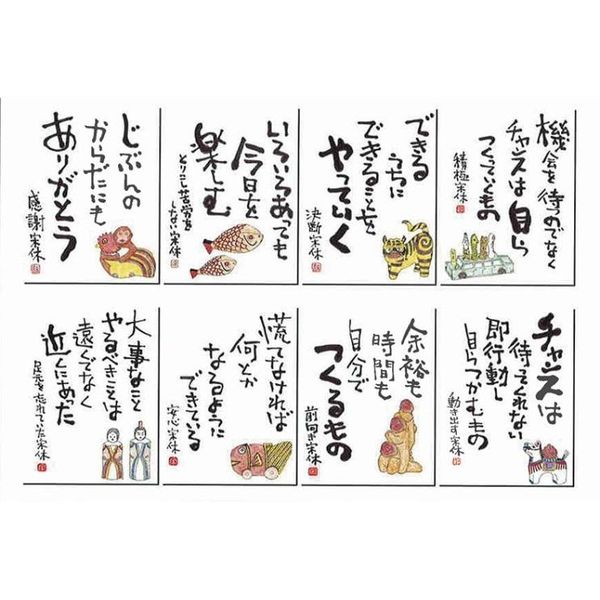 機会を待つのでなく
チャンスは自ら
つくっていくもの
積極宗休
できる
うちに
できることを
やっていく
決断宗休
いろいろあっても
今日を
楽しむ
とりこし苦労を
しない宗休
じぶんの
からだにも
ありがとう
感謝宗休
チャンスは
待ってくれない
即行動し
自らつかむもの
動き出す宗休
余裕も
時間も
自分で
つくるもの
前向き宗休
慌てなければ
何とか
なるように
できている
安心宗休
大事なこと
やるべきことは
遠くでなく
近くにあった
足元を忘れていた宗休